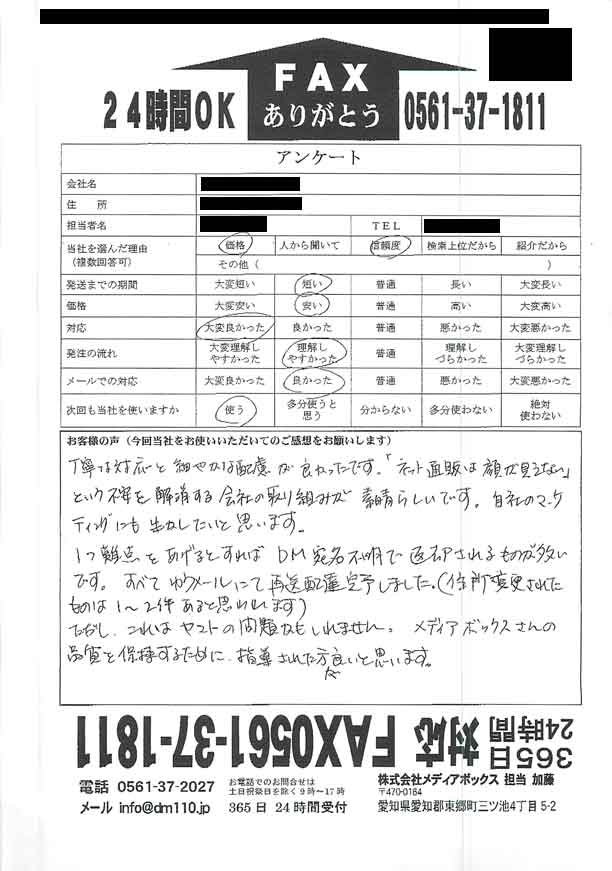 FAX
ありがとう
24時間OK
0561-37-1811
アンケート
会社名
住　所
担当者名 TEL
当社を選んだ理由 価格 人から聞いて 信頼度 検索上位だから 紹介だから
（複数回答可） その他（ ）
発送までの期間 大変短い 短い 普通 長い 大変長い
価格 大変安い 安い 普通 高い 大変高い
対応 大変良かった 良かった 普通 悪かった 大変悪かった
発注の流れ 大変理解しやすかった 理解しやすかった 普通 理解しづらかった 大変理解しづらかった
メールでの対応 大変良かった 良かった 普通 悪かった 大変悪かった
次回も当社を使いますか 使う 多分使うと思う 分からない 多分使わない 絶対使わない
お客様の声（今回当社をお使いいただいてのご感想をお願いします）
丁寧な対応と細やかな配慮が良かったです。「ネット通販は顔が見えない」
という不安を解消する会社の取り組みが素晴らしいです。自社のマーケ
ティングにも生かしたいと思います。
1つ難点をあげるとすればDM宛名不明で返却されるものが多い
です。すべてゆうメールにて再送配達完了しました。（住所変更された
ものは1〜2件あると思われます）
ただし、これはヤマトの問題かもしれません。メディアボックスさんの
品質を保持するために、指導された方が良いと思います。
365日
24時間
対応
FAX0561-37-1811
電話 0561-37-2027
お電話でのお問合せは
土日祝祭日を除く9時〜17時
メール info@dm110.jp 365日24時間受付
株式会社メディアボックス 担当 加藤
〒470-0164
愛知県愛知郡東郷町三ツ池4丁目5-2